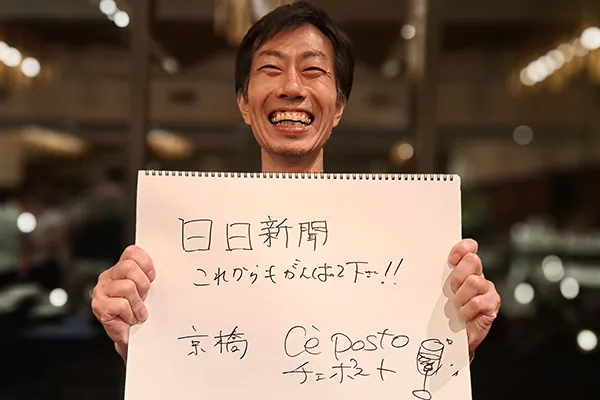 日日新聞
これからもがんばって下さい!!
京橋 Cè posto
チェポスト